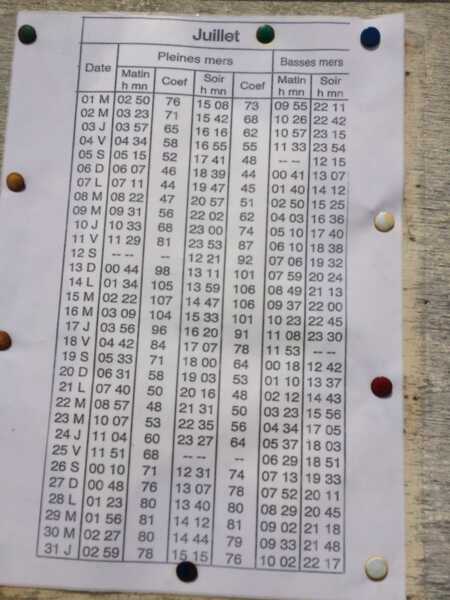 Juillet
Date Pleines mers Basses mers
Matin Coef Soir Coef Matin Soir
h mn h mn h mn h mn
01 M 02 50 76 15 08 73 09 55 22 11
02 M 03 23 71 15 42 68 10 26 22 42
03 J 03 57 65 16 16 62 10 57 23 15
04 V 04 34 58 16 55 55 11 33 23 54
05 S 05 15 52 17 41 48 -- -- 12 15
06 D 06 07 46 18 39 44 00 41 13 07
07 L 07 11 44 19 47 45 01 40 14 12
08 M 08 22 47 20 57 51 02 50 15 25
09 M 09 31 56 22 02 62 04 03 16 36
10 J 10 33 68 23 00 74 05 10 17 40
11 V 11 29 81 23 53 87 06 10 18 38
12 S -- -- -- 12 21 92 07 06 19 32
13 D 00 44 98 13 11 101 07 59 20 24
14 L 01 34 105 13 59 106 08 49 21 13
15 M 02 22 107 14 47 106 09 37 22 00
16 M 03 09 104 15 33 101 10 23 22 45
17 J 03 56 96 16 20 91 11 08 23 30
18 V 04 42 84 17 07 78 11 53 -- --
19 S 05 33 71 18 00 64 00 18 12 42
20 D 06 31 58 19 03 53 01 10 13 37
21 L 07 40 50 20 16 48 02 12 14 43
22 M 08 57 48 21 31 50 03 23 15 56
23 M 10 07 53 22 35 56 04 34 17 05
24 J 11 04 60 23 27 64 05 37 18 03
25 V 11 51 68 -- -- -- 06 29 18 51
26 S 00 10 71 12 31 74 07 13 19 33
27 D 00 48 76 13 07 78 07 52 20 11
28 L 01 23 80 13 40 80 08 29 20 45
29 M 01 56 81 14 12 81 09 02 21 18
30 M 02 27 80 14 44 79 09 33 21 48
31 J 02 59 78 15 15 76 10 02 22 17